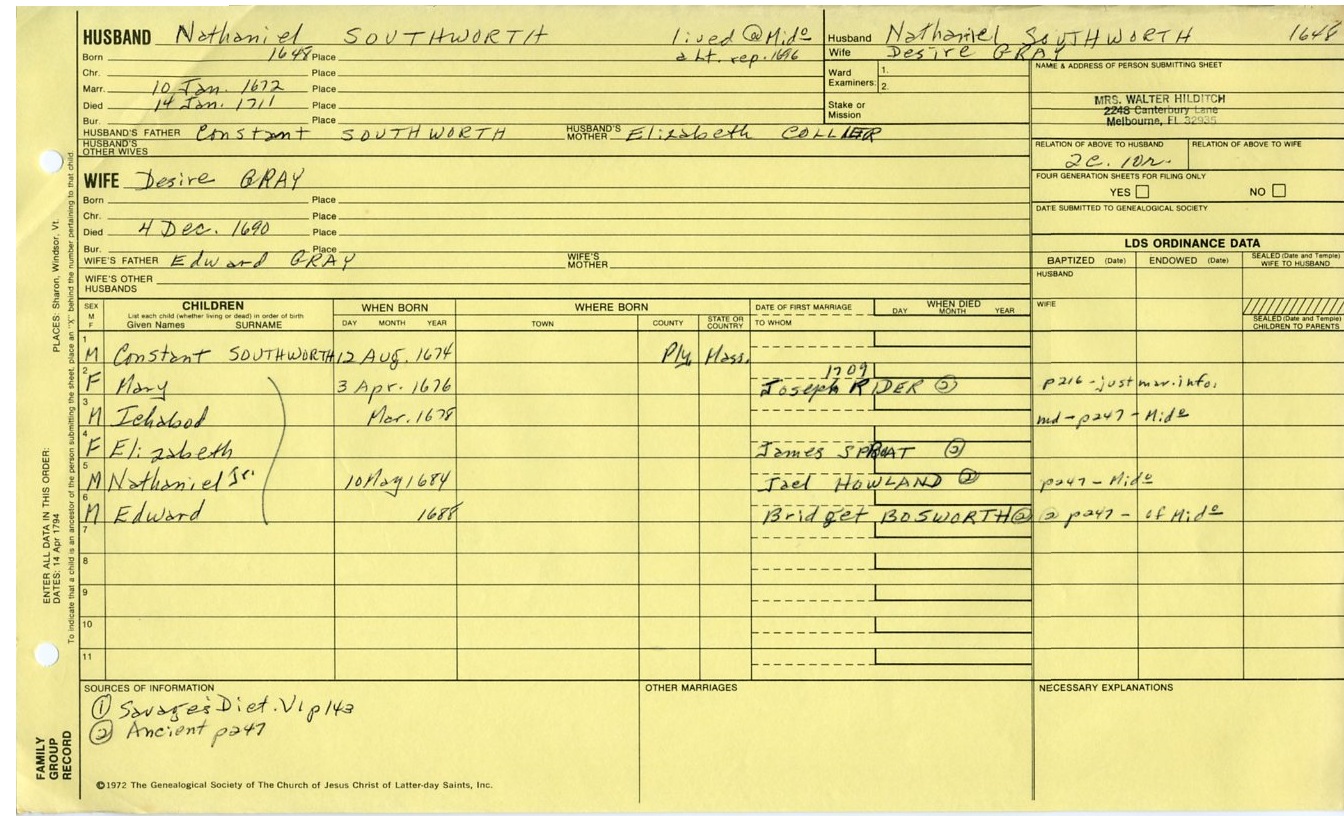 HUSBAND Nathaniel SOUTHWORTH lived @ Mido
Born 1648 Place a Lt. rep. 1696
Chr. Place
Marr. 10 Jan. 1672 Place
Died 14 Jan. 1711 Place
Bur. Place
HUSBAND'S FATHER Constant SOUTHWORTH HUSBAND'S MOTHER Elizabeth COLLIER
HUSBAND'S OTHER WIVES
WIFE Desire GRAY
Born Place
Chr. Place
Died 4 Dec. 1690 Place
Bur. Place
WIFE'S FATHER Edward GRAY WIFE'S MOTHER
WIFE'S OTHER HUSBANDS
Husband Nathaniel SOUTHWORTH 1648
Wife Desire GRAY
Ward Examiners: 1.
2.
Stake or Mission
NAME & ADDRESS OF PERSON SUBMITTING SHEET
MRS. WALTER HILDITCH
2248 Canterbury Lane
Melbourne, FL 32935
RELATION OF ABOVE TO HUSBAND RELATION OF ABOVE TO WIFE
2c. 10r.
FOUR GENERATION SHEETS FOR FILING ONLY
YES NO
DATE SUBMITTED TO GENEALOGICAL SOCIETY
LDS ORDINANCE DATA
BAPTIZED (Date) ENDOWED (Date) SEALED (Date and Temple) WIFE TO HUSBAND
HUSBAND
WIFE
SEALED (Date and Temple) CHILDREN TO PARENTS
SEX M F
CHILDREN
List each child (whether living or dead) in order of birth
Given Names SURNAME
WHEN BORN
DAY MONTH YEAR
WHERE BORN
TOWN COUNTY STATE OR COUNTRY
DATE OF FIRST MARRIAGE
TO WHOM
WHEN DIED
DAY MONTH YEAR
1 M Constant SOUTHWORTH 12 Aug. 1674 Ply Mass.
1709
2 F Mary 3 Apr. 1676 Joseph RIDER ② p216 - just mar. info.
3 M Ichabod Mar. 1678 md - p247 - Mido
4 F Elizabeth James SPROAT ②
5 M Nathaniel Jr. 10 May 1684 Jael HOWLAND ② p247 - Mido
6 M Edward 1688 Bridget BOSWORTH ② ② p247 - of Mido
7
8
9
10
11
SOURCES OF INFORMATION
① Savage's Dict. V1 p143
② Ancient p247
OTHER MARRIAGES
NECESSARY EXPLANATIONS
©1972 The Genealogical Society of The Church of Jesus Christ of Latter-day Saints, Inc.
FAMILY GROUP RECORD
ENTER ALL DATA IN THIS ORDER:
DATES: 14 Apr 1794 PLACES: Sharon, Windsor, Vt.
To indicate that a child is an ancestor of the person submitting the sheet, place an "X" behind the number pertaining to that child.